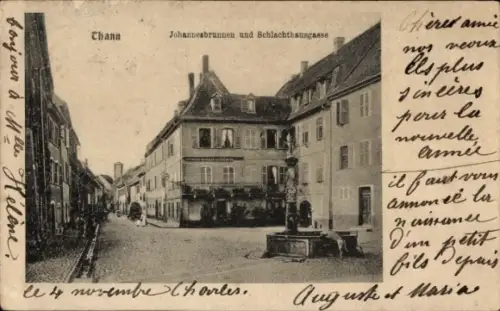 Thann
Johannesbrunnen und Schlachthausgasse
bonjour à Mlle Hélène
Chères amie
nos veoux
lls plus
sincères
pour la
nouvelle
année
il faut vous
annoncer la
naissance
d'un petit
fils depais
le 4 novembre Charles.
Auguste et Maria